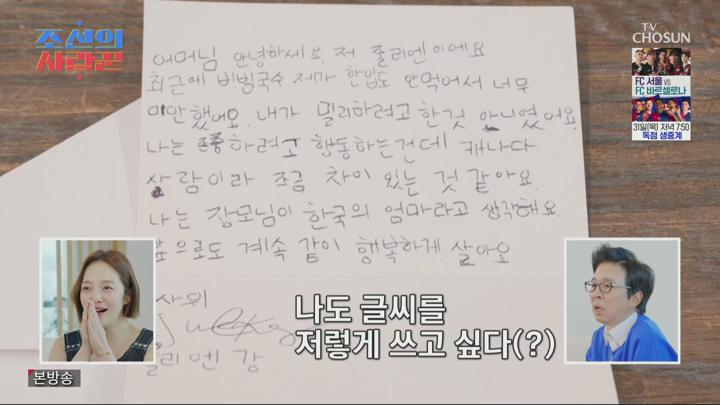 조선의
사랑꾼
TV
CHOSUN
FC 서울 VS
FC 바르셀로나
31일(목) 저녁 7:50
독점 생중계
어머님 안녕하세요, 저 줄리엔이에요
최근에 비빔국수 제가 한입도 안먹어서 너무
미안했네요. 내가 밀리하려고 한것 아니였어요.
나는 하려고 행동하는건데 캐나다
사람이라 조금 차이 있는 것 같아요.
나는 장모님이 한국의 엄마라고 생각해요.
앞으로도 계속 같이 행복하게 살아요
사위
줄리엔 강
나도 글씨를
저렇게 쓰고 싶다(?)
본방송